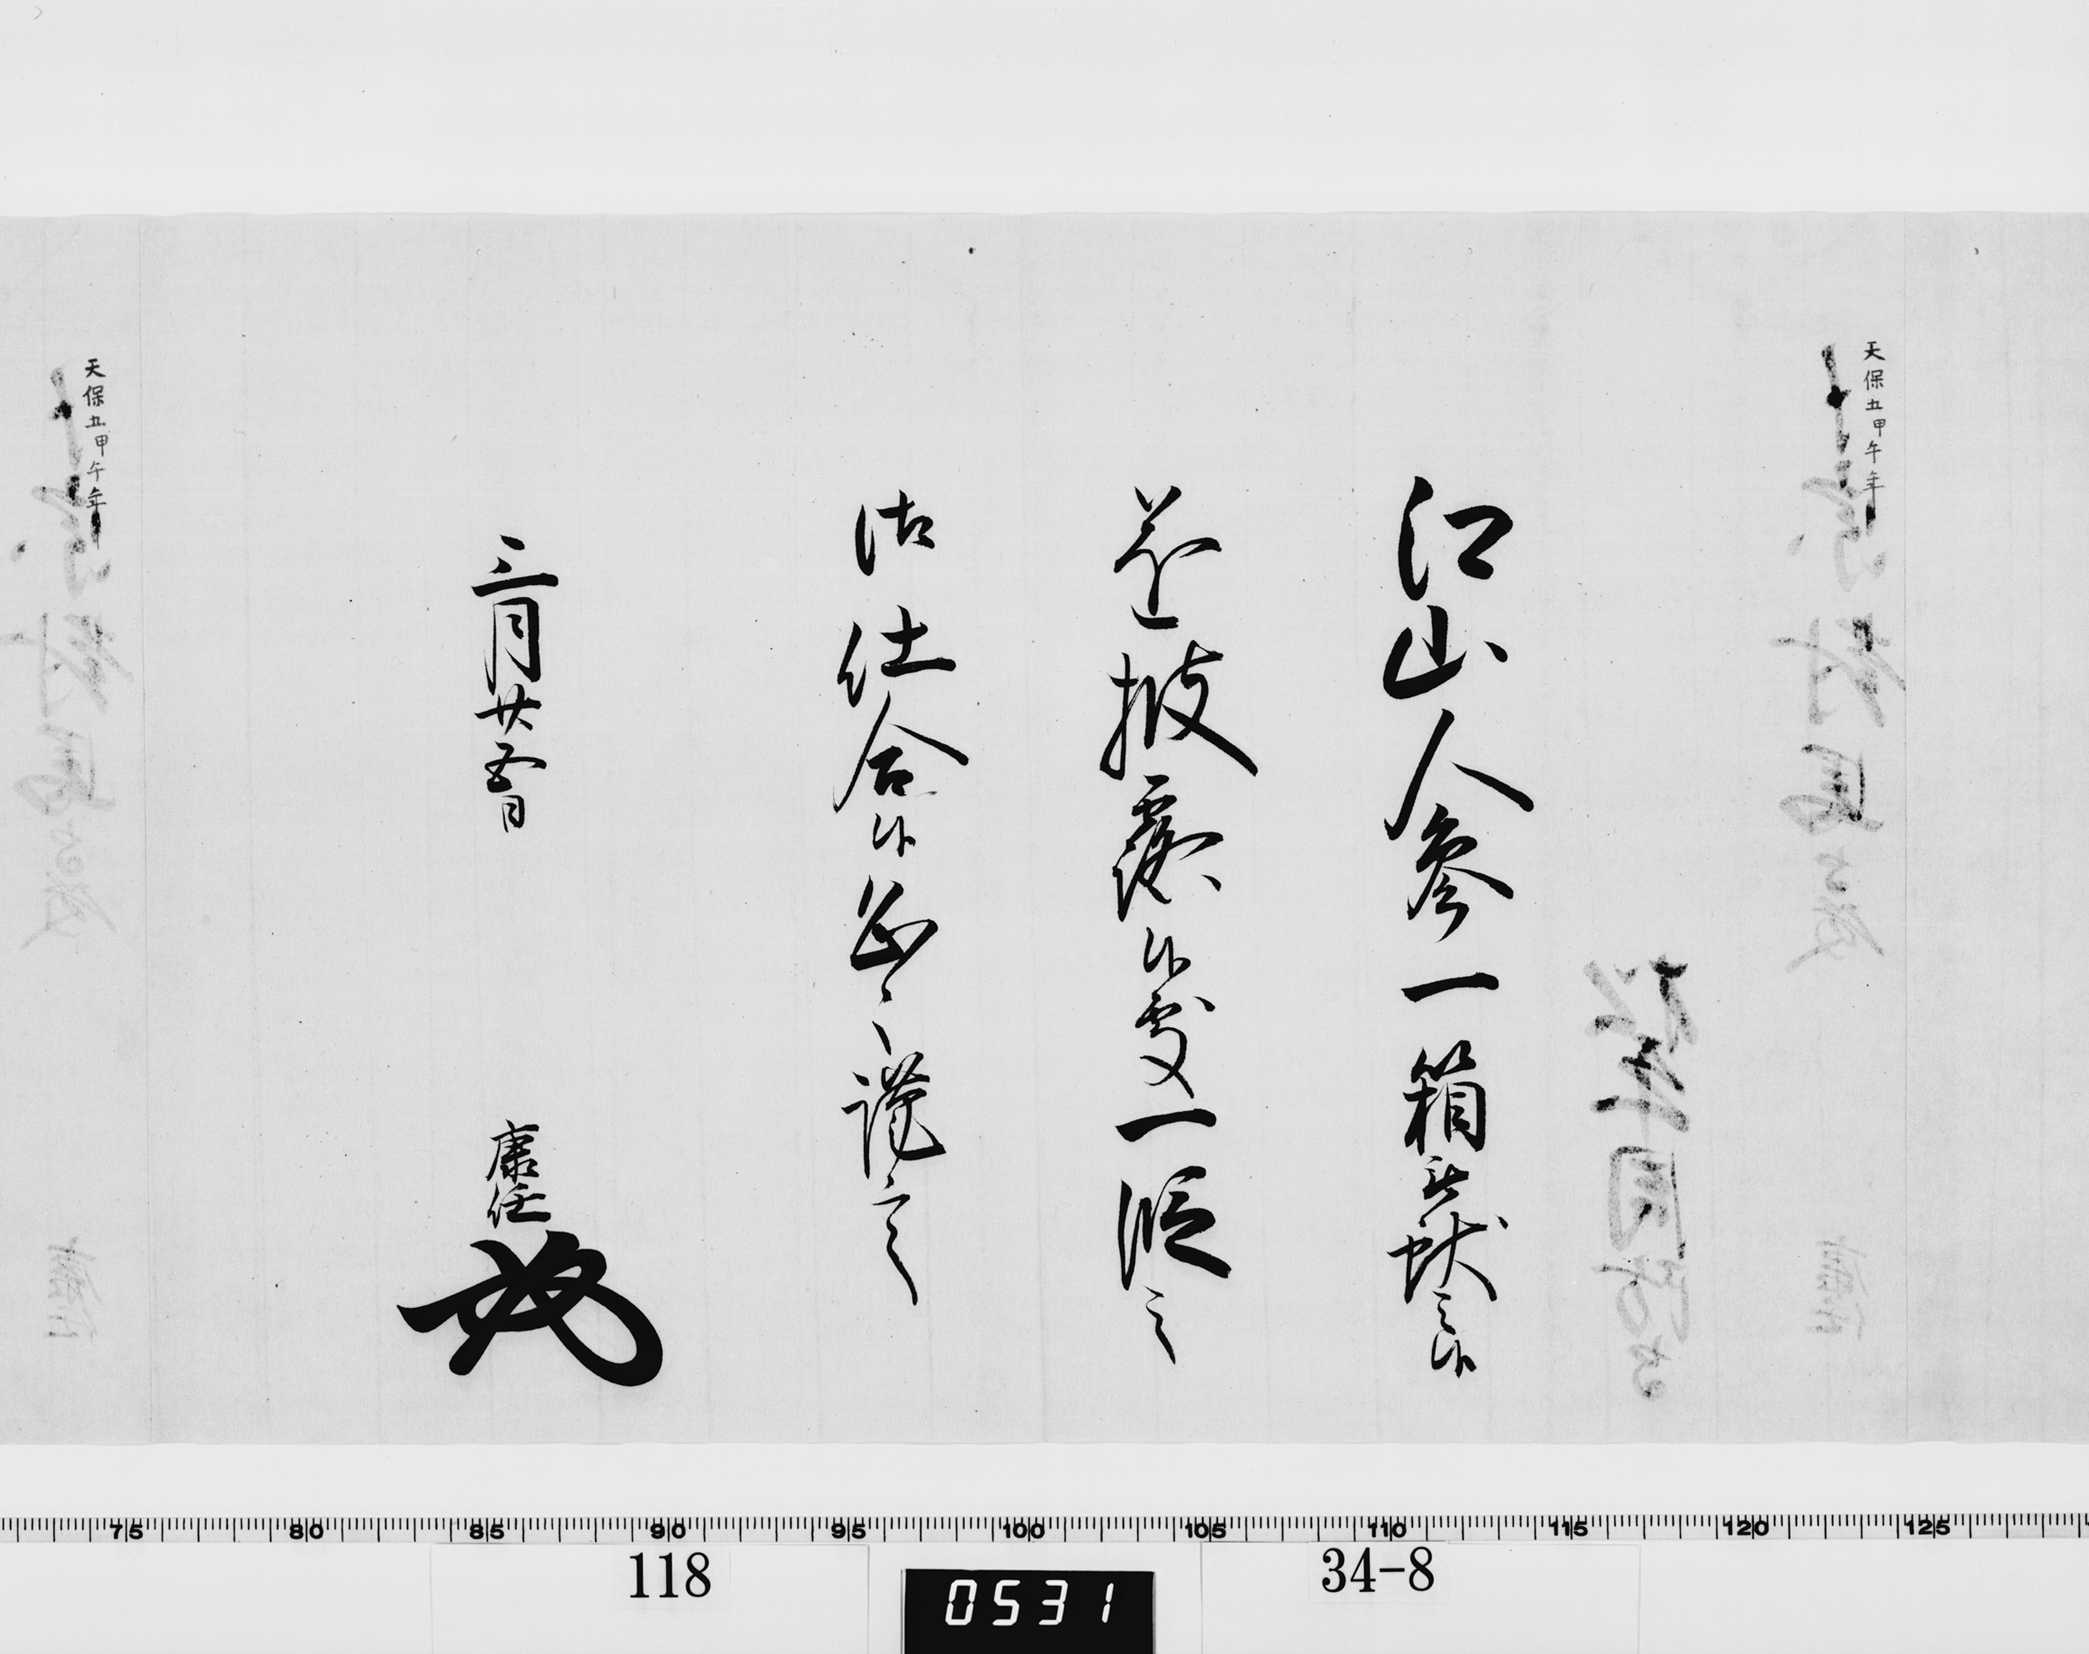 天保五甲午年
江山人参一箱被献之候
遂披露候處一段之
御仕合候恐々謹言
三月廿五日
康任
天保五甲午年
75 80 85 90 95 100 105 110 115 120 125
118
0531
34-8